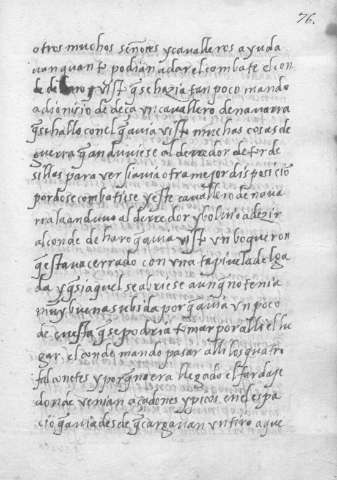 76.
otros muchos señores y cavalleros ayuda
van quanto podian a dar el combate el con
de de haro y visto q̃ se hazia tan poco mando
a dionisio de deça un cavallero de navarra
q̃ se hallo con el q̃ avia visto muchas cosas de
guerra q̃ anduviese al derredor de torde
sillas para ver si avia otra mejor disposiçio
por do se combatiese y este cavallero de nava
rra la anduvo al derredor y bolvio a dezir
al conde de haro q̃ avia visto un boqueron
q̃ estava cerrado con una tapiuela delga
da y q̃ si aquel se abriese aunq̃ no tenia
muy buena subida porq̃ avia un poco
de cuesta q̃ se podria tomar por alli el lu
gar. el conde mando pasar alli los quatro
falconetes y porq̃ no era llegado el fardaje
donde venian açadones y picos. en el espa
cio q̃ avia desde q̃ cargavan un tiro a que